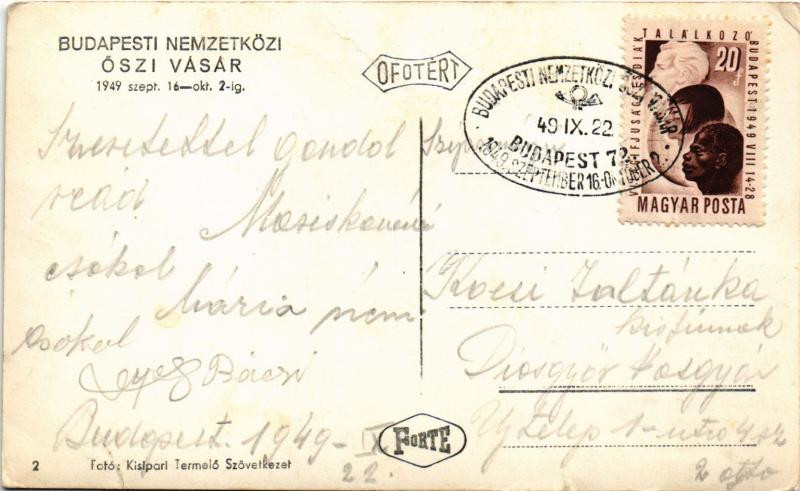 BUDAPESTI NEMZETKÖZI
ŐSZI VÁSÁR
1949 szept. 16—okt. 2-ig.
OFOTÉRT
BUDAPESTI NEMZETKÖZI ŐSZI VÁSÁR
49 IX. 22.
BUDAPEST 72
1949. SZEPTEMBER 16.-OKTÓBER 2.
TALÁLKOZÓ
BUDAPEST 1949 VIII 14-28
20 f
MAGYAR POSTA
Szeretettel gondol
reád
csókol
Mária néni
csókol
Bácsi
Budapest. 1949 – IX
22.
Kocsi Zoltánka
Diósgyőr Vasgyár
Uj telep 1-utca 4 sz
FORTE
2
Fotó: Kisipari Termelő Szövetkezet